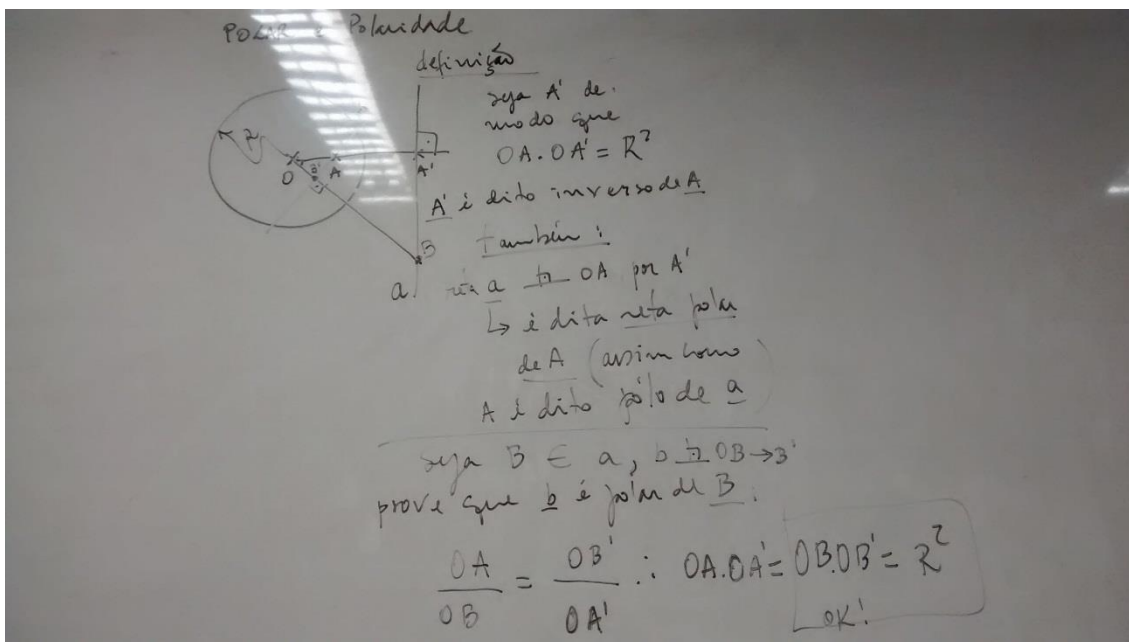 POLAR e Polaridade
definição
seja A' de
modo que
OA.OA' = R²
R
O B' A A'
A' é dito inverso de A
também :
B
a reta a ⊥ OA por A'
↳ é dita reta polar
de A (assim como
A é dito pólo de a)
seja B ∈ a, b ⊥ OB → B'
prove que b é polar de B.
OA / OB = OB' / OA' ∴ OA.OA' = OB.OB' = R²
OK!